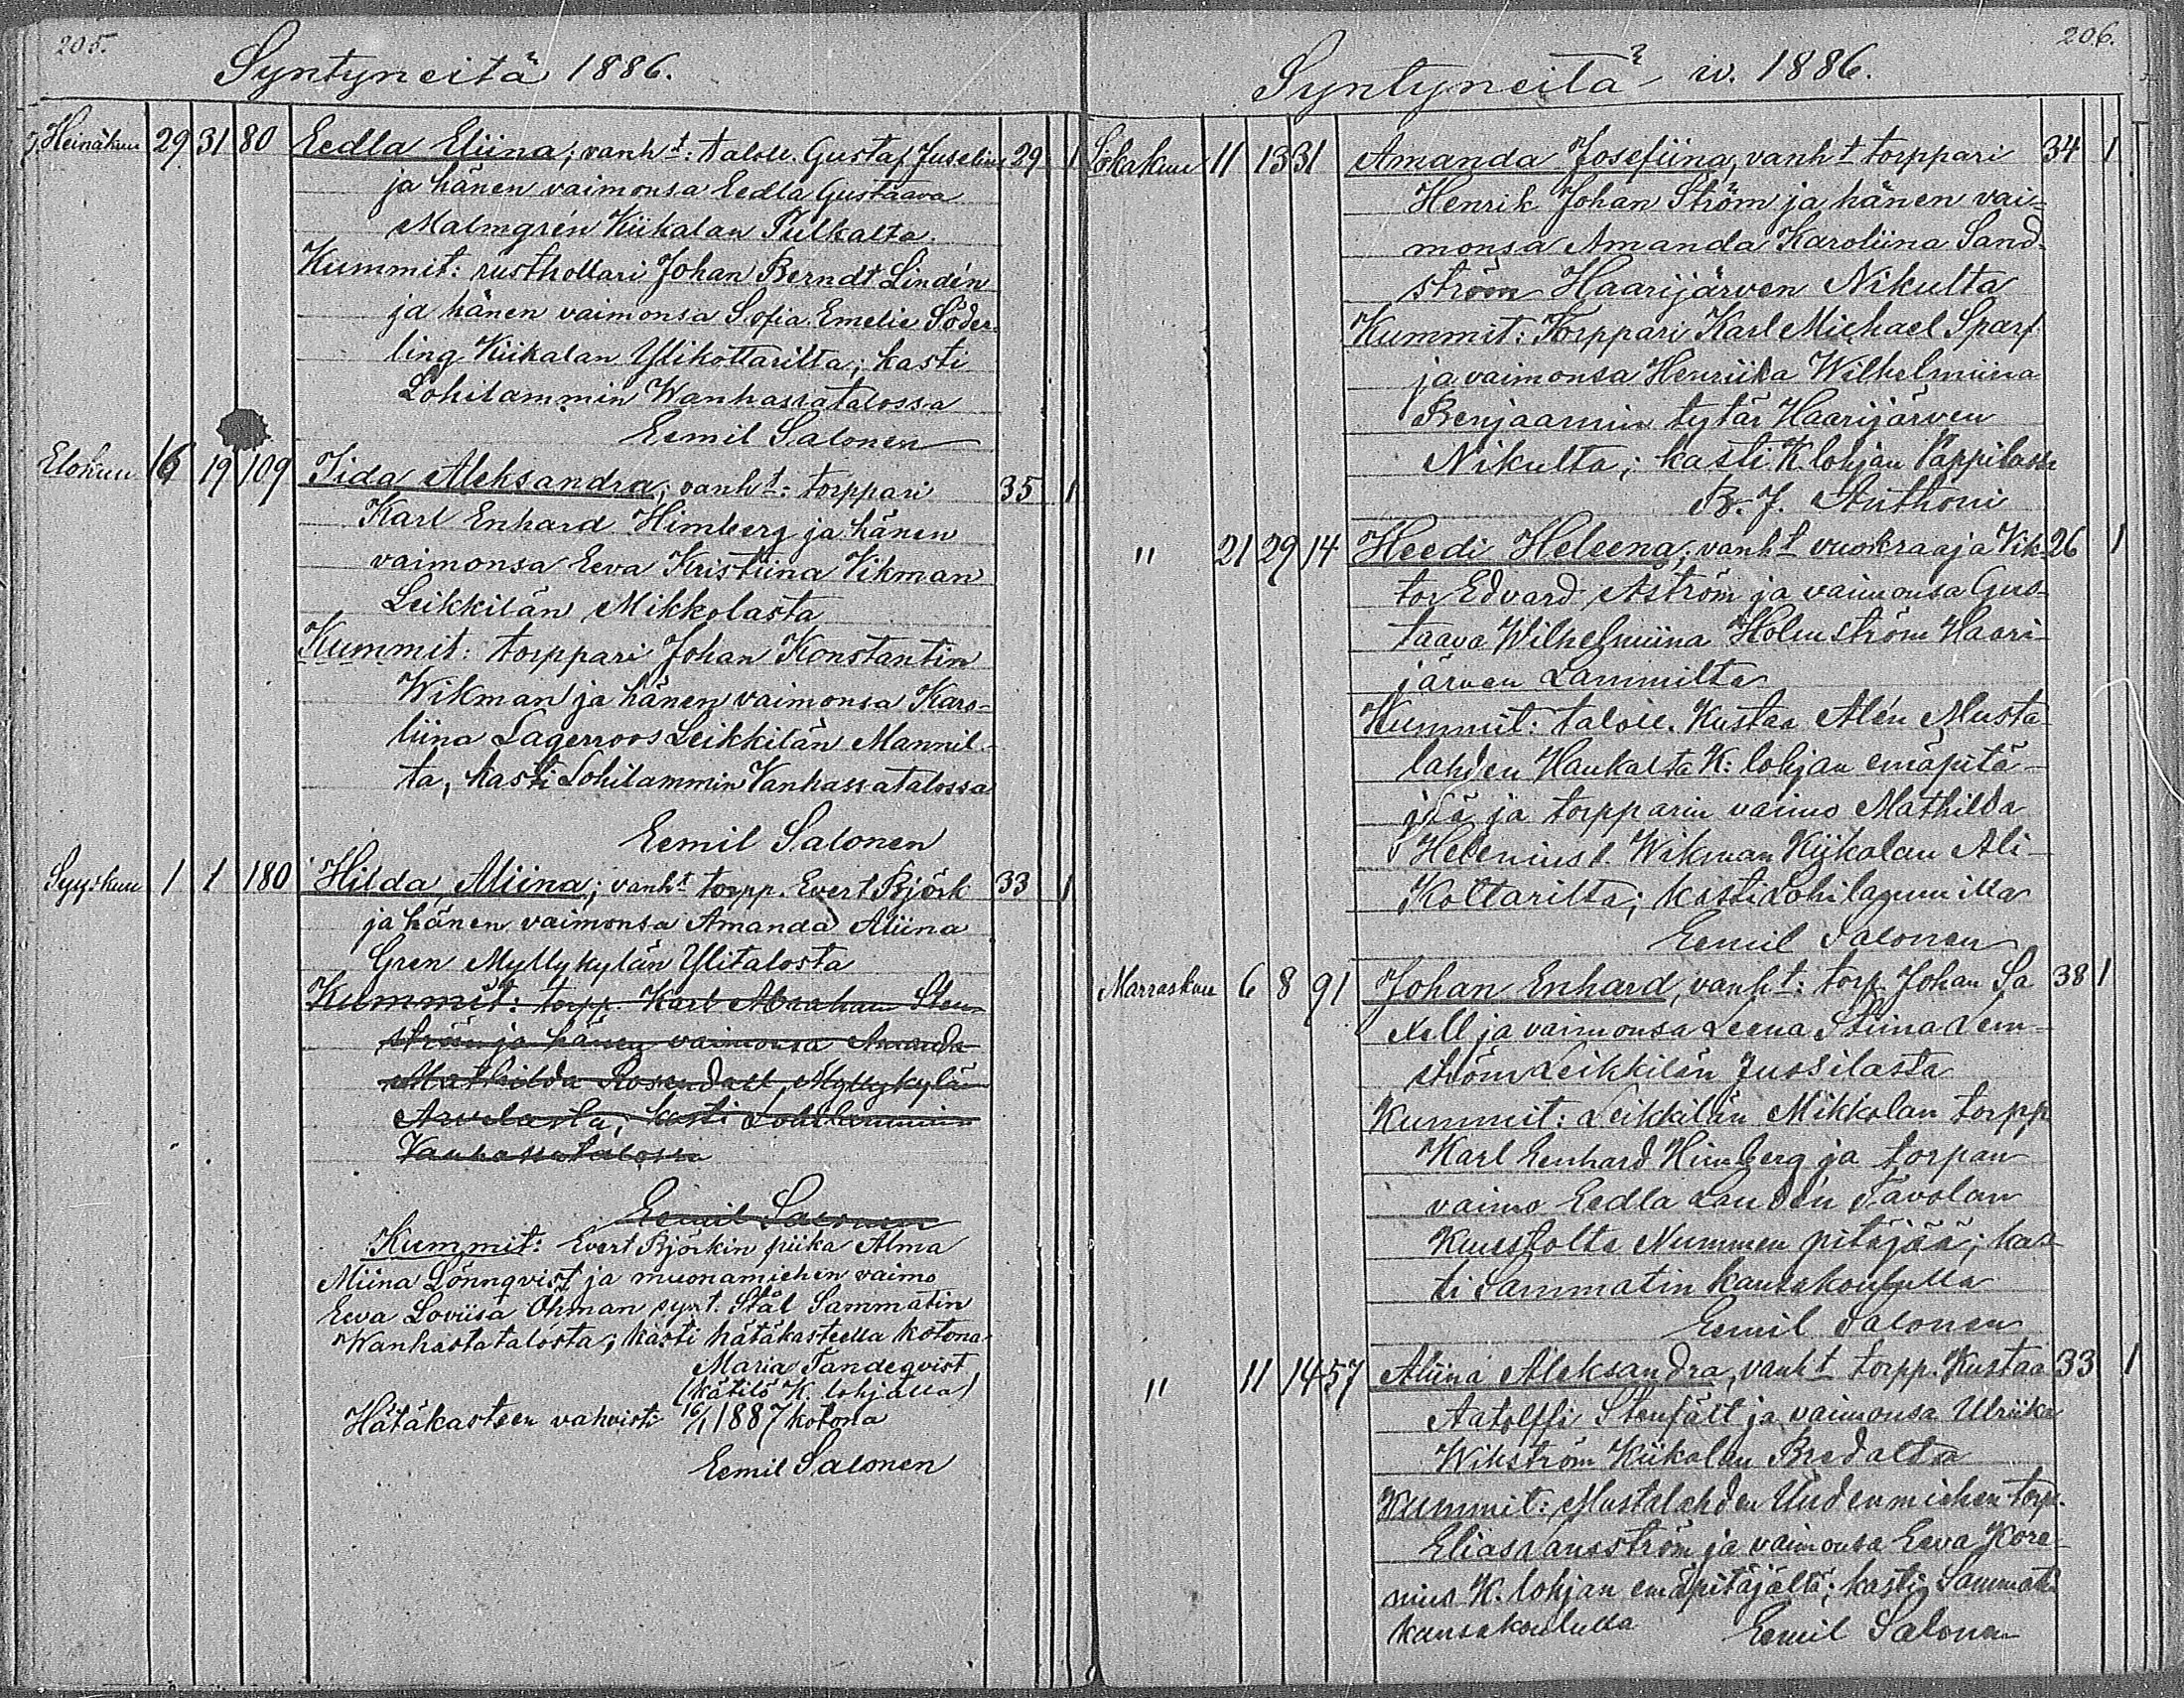 205.
Syntyneitä 1886.
Heinäkuu 29 31 80 Eedla Eliina; vanht: taloll. Gustaf Juselius 29 1
ja hänen vaimonsa Eedla Gustaava
Malmgrén Kiikalan Pulkalta.
Kummit: rusthollari Johan Berndt Lindén
ja hänen vaimonsa Sofia Emelie Söder-
ling Kiikalan Ylikottarilta; kasti
Lohilammin Wanhassatalossa
Eemil Salonen
Elokuu 16 19 109 Iida Aleksandra; vanht: torppari 35 1
Karl Enhard Himberg ja hänen
vaimonsa Eeva Kristiina Vikman
Leikkilän Mikkolasta
Kummit: torppari Johan Konstantin
Wikman ja hänen vaimonsa Karo-
liina Lagerroos Leikkilän Mannil-
ta, kasti Lohilammin Vanhassatalossa
Eemil Salonen
Syyskuu 1 1 180 Hilda Miina; vanht torpp. Evert Björk 33 1
ja hänen vaimonsa Amanda Aliina
Gren Myllykylän Ylitalosta
Kummit: torpp. Karl Abraham Sten-
ström ja hänen vaimonsa Amanda
Mathilda Rosendall, Myllykylän
Arvelasta; kasti Lohilammin
Vanhassatalossa
Eemil Salonen
Kummit: Evert Björkin piika Alma
Miina Lönnqvist ja muonamiehen vaimo
Eeva Loviisa Öhman synt. Stål Sammatin
Wanhastatalosta; kasti hätäkasteella kotona
Maria Tandeqvist
(kätilö K. lohjalla)
Hätäkasteen vahvisti 16/1 1887 kotona
Eemil Salonen
206.
Syntyneitä w. 1886.
Lokakuu 11 13 31 Amanda Josefiina, vanht torppari 34 1
Henrik Johan Ström ja hänen vai-
monsa Amanda Karoliina Sand-
ström Haarijärven Nikulta
Kummit: Torppari Karl Michael Sparf
ja vaimonsa Henriika Wilhelmiina
Benjaamin tytär Haarijärven
Nikulta; kasti K. lohjan Pappilassa
B. J. Anthoni
" 21 29 14 Heedi Heleena; vanht vuokraaja Vik- 26 1
tor Edvard Åström ja vaimonsa Gus-
taava Wilhelmiina Holmström Haari-
järven Lammilta
Kummit: taloll. Kustaa Alén Musta-
lahden Haukalta K: lohjan emäpitä-
jää ja torpparin vaimo Mathilda
Helenius e. Wikman Kiikalan Ali-
Kottarilta; kasti Lohilammilla
Eemil Salonen
Marraskuu 6 8 91 Johan Enhard, vanht: torp. Johan Sa 38 1
xell ja vaimonsa Leena Stiina Lem-
ström Leikkilän Jussilasta
Kummit: Leikkilän Mikkolan torpp.
Karl Eenhard Himberg ja torpan
vaimo Eedla Lindén Tavolan
Nummen pitäjää; kas-
ti Sammatin kansakoululla
Eemil Salonen
" 11 14 57 Aliina Aleksandra, vanht torpp. Kustaa 33 1
Aatolffi Stenfält ja vaimonsa Ulriika
Wikström Kiikalan Bredalta
Kummit: Mustalahden Uudenmiehen torp.
Elias Lansström ja vaimonsa Eeva Kore-
nius K. lohjan emäpitäjältä; kasti Sammatin
kansakoululla Eemil Salonen